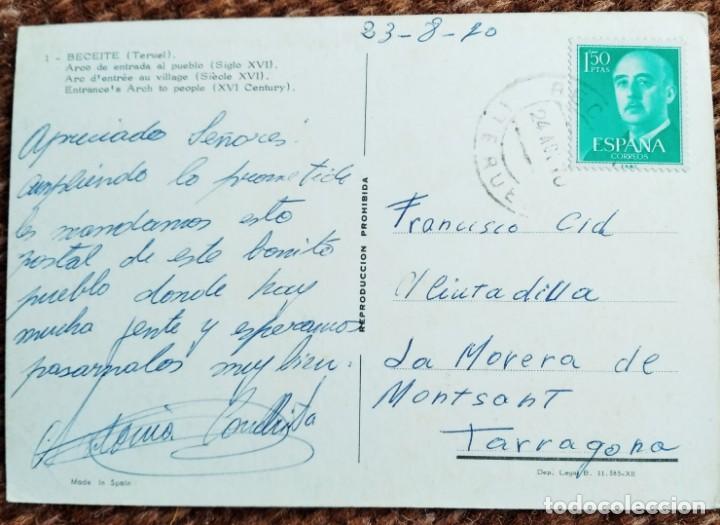 23-8-70
1 - BECEITE (Teruel).
Arco de entrada al pueblo (Siglo XVI).
Arc d'entrée au village (Siècle XVI).
Entrance's Arch to people (XVI Century).
1'50
PTAS
ESPAÑA
CORREOS
24 AGO
TERUEL
Apreciados Señores:
cumpliendo lo prometido
les mandamos esta
postal de este bonito
pueblo donde hay
mucha gente y esperamos
pasarnalos muy bien.
Conchita
REPRODUCCION PROHIBIDA
Francisco Cid
La Morera de
Montsant
Tarragona
Made in Spain
Dep. Legal B. 11.585-XII
todocoleccion
todocoleccion.net